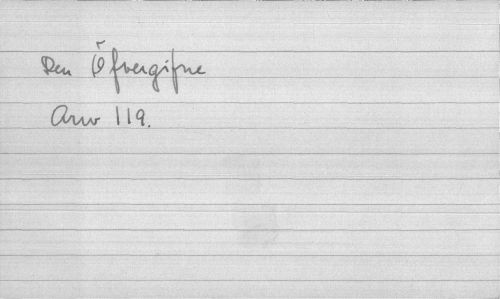 Den Öfvergifne
Arw 119.